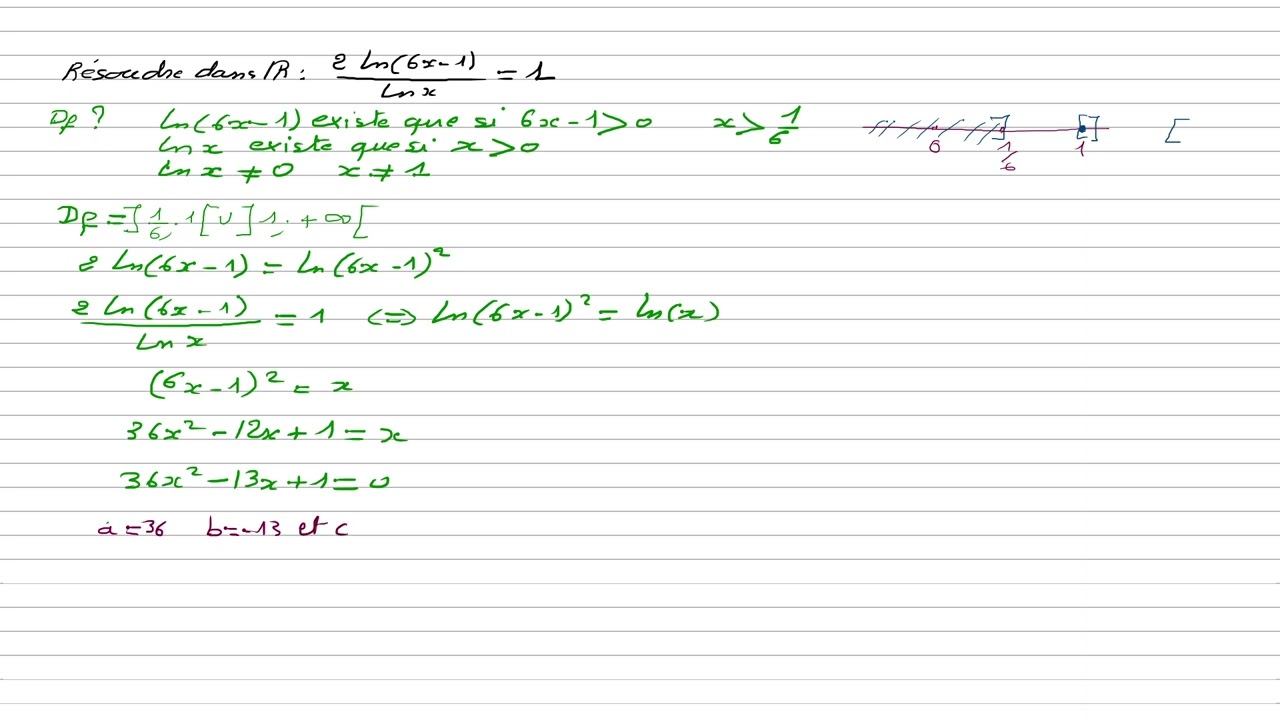 Résoudre dans ℝ : 2 ln(6x-1) / ln x = 1
Df ? ln(6x-1) existe que si 6x-1>0 x > 1/6
ln x existe que si x>0
ln x ≠ 0 x ≠ 1
0 1/6 1
Df = ]1/6; 1[ ∪ ]1; +∞[
2 ln(6x-1) = ln(6x-1)²
2 ln(6x-1) / ln x = 1 ⇔ ln(6x-1)² = ln(x)
(6x-1)² = x
36x² - 12x + 1 = x
36x² - 13x + 1 = 0
a = 36 b = -13 et c